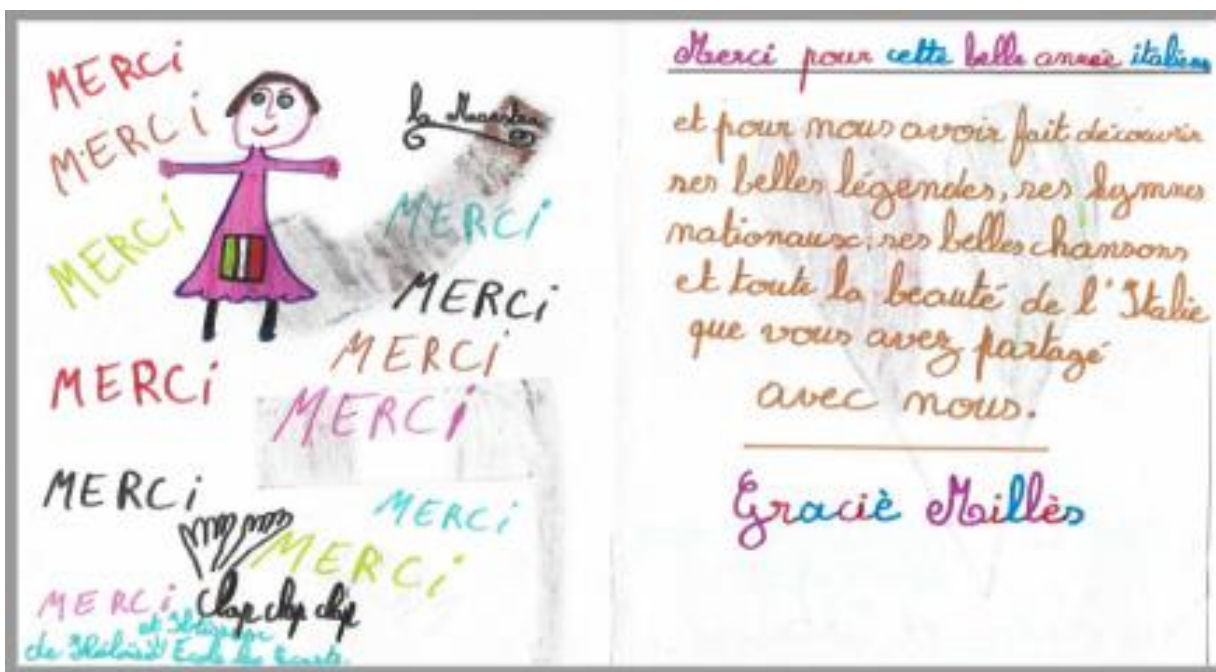 MERCi
MERCi
MERCi
la Maestra
MERCi
MERCi
MERCi
MERCi
MERCi
MERCi
MERCi
MERCi
MERCi clap clap clap
et
de École les
Merci pour cette belle année italienne
et pour nous avoir fait découvrir
ses belles légendes, ses hymnes
nationaux; ses belles chansons
et toute la beauté de l'Italie
que vous avez partagé
avec nous.
Graciè Millès